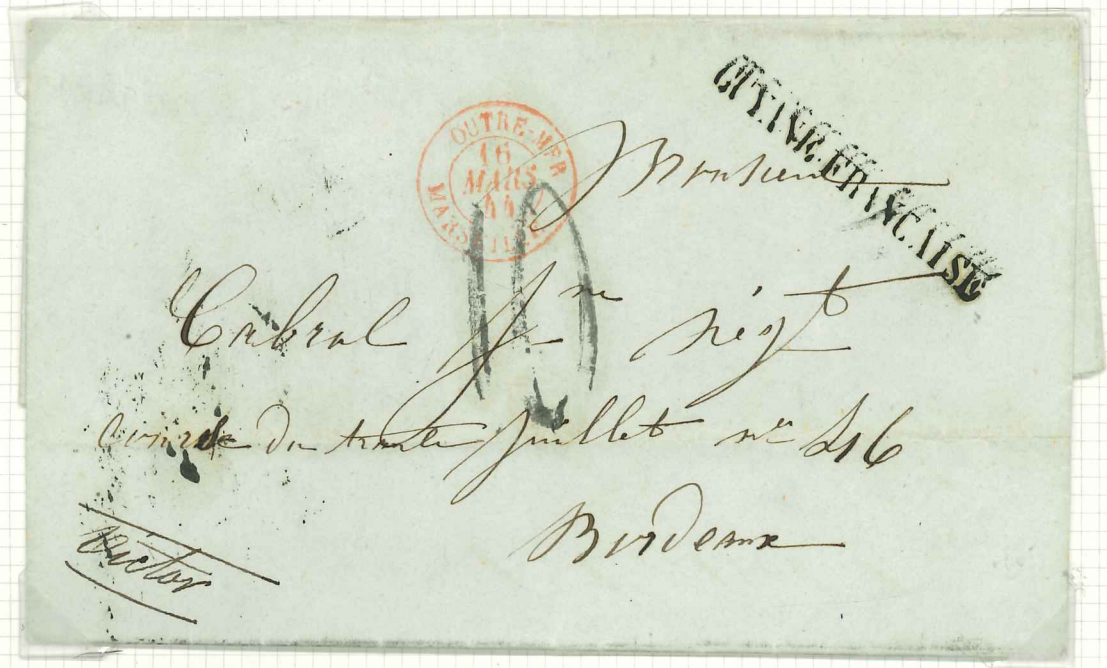 GUYANE FRANÇAISE
OUTRE-MER
16
MARS
44
MARSEILLE
10
Monsieur
Cabral Jne négt
cours du trente juillet no 46
Bordeaux
Victor